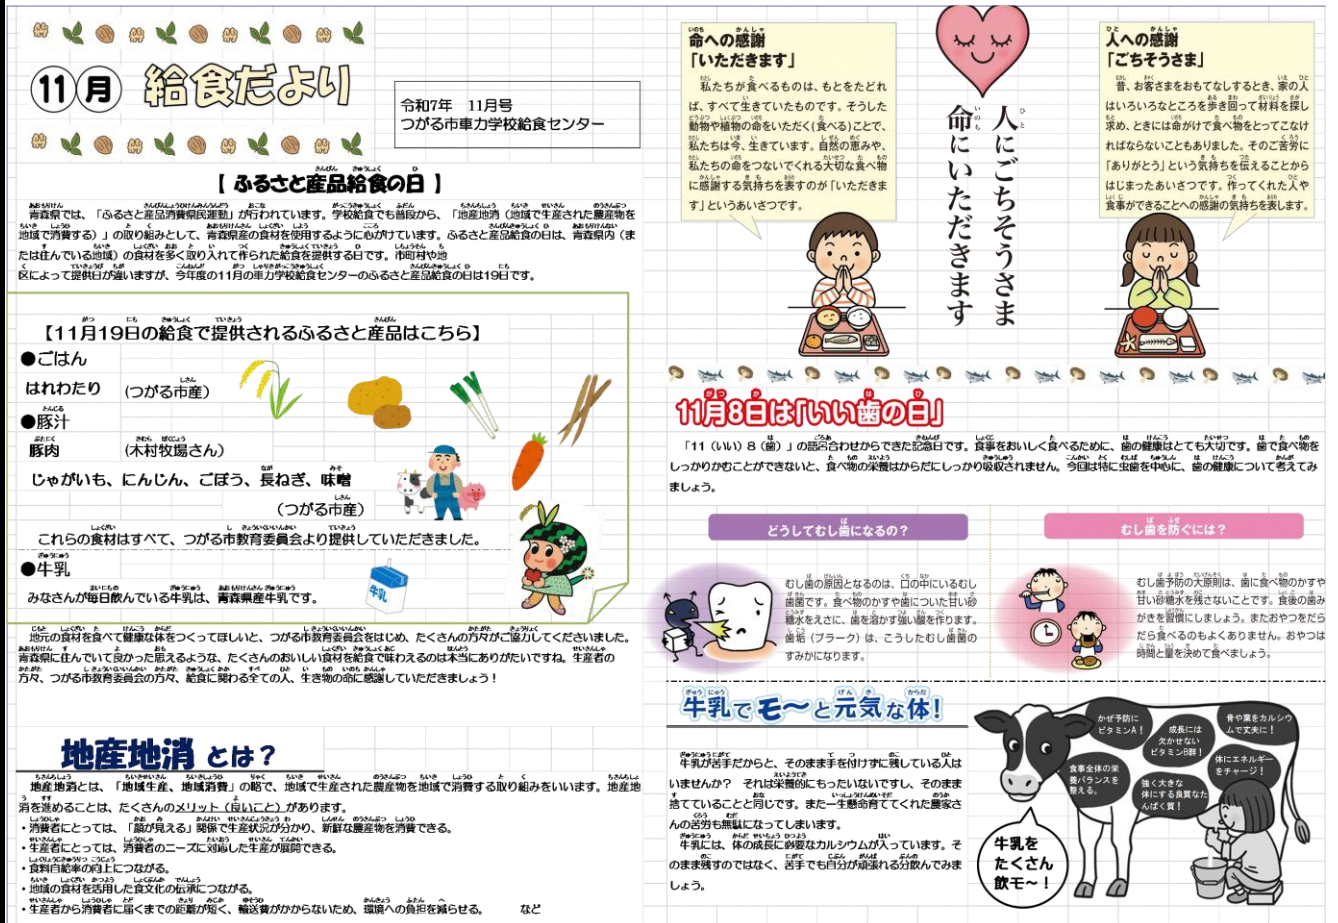 11月 給食だより
令和7年 11月号
つがる市車力学校給食センター
【 ふるさと産品給食の日 】
青森県では、「ふるさと産品消費県民運動」が行われています。学校給食でも普段から、「地産地消（地域で生産された農産物を
地域で消費する）」の取り組みとして、青森県産の食材を使用するように心がけています。ふるさと産品給食の日は、青森県内（ま
たは住んでいる地域）の食材を多く取り入れて作られた給食を提供する日です。市町村や地
区によって提供日が違いますが、今年度の11月の車力学校給食センターのふるさと産品給食の日は19日です。
【11月19日の給食で提供されるふるさと産品はこちら】
●ごはん
はれわたり （つがる市産）
●豚汁
豚肉 （木村牧場さん）
じゃがいも、にんじん、ごぼう、長ねぎ、味噌
（つがる市産）
これらの食材はすべて、つがる市教育委員会より提供していただきました。
●牛乳
みなさんが毎日飲んでいる牛乳は、青森県産牛乳です。
牛乳
地元の食材を食べて健康な体をつくってほしいと、つがる市教育委員会をはじめ、たくさんの方々がご協力してくださいました。
青森県に住んでいて良かった思えるような、たくさんのおいしい食材を給食で味わえるのは本当にありがたいですね。生産者の
方々、つがる市教育委員会の方々、給食に関わる全ての人、生き物の命に感謝していただきましょう！
地産地消 とは？
地産地消とは、「地域生産、地域消費」の略で、地域で生産された農産物を地域で消費する取り組みをいいます。地産地
消を進めることは、たくさんのメリット（良いこと）があります。
・消費者にとっては、「顔が見える」関係で生産状況が分かり、新鮮な農産物を消費できる。
・生産者にとっては、消費者のニーズに対応した生産が展開できる。
・食料自給率の向上につながる。
・地域の食材を活用した食文化の伝承につながる。
・生産者から消費者に届くまでの距離が短く、輸送費がかからないため、環境への負担を減らせる。 など
命への感謝
「いただきます」
私たちが食べるものは、もとをたどれ
ば、すべて生きていたものです。そうした
動物や植物の命をいただく(食べる)ことで、
私たちは今、生きています。自然の恵みや、
私たちの命をつないでくれる大切な食べ物
に感謝する気持ちを表すのが「いただきま
す」というあいさつです。
人にごちそうさま
命にいただきます
人への感謝
「ごちそうさま」
昔、お客さまをおもてなしするとき、家の人
はいろいろなところを歩き回って材料を探し
求め、ときには命がけで食べ物をとってこなけ
ればならないこともありました。そのご苦労に
「ありがとう」という気持ちを伝えることから
はじまったあいさつです。作ってくれた人や
食事ができることへの感謝の気持ちを表します。
11月8日は「いい歯の日」
「11（いい）8（歯）」の語呂合わせからできた記念日です。食事をおいしく食べるために、歯の健康はとても大切です。歯で食べ物を
しっかりかむことができないと、食べ物の栄養はからだにしっかり吸収されません。今回は特に虫歯を中心に、歯の健康について考えてみ
ましょう。
どうしてむし歯になるの？
むし歯の原因となるのは、口の中にいるむし
歯菌です。食べ物のかすや歯についた甘い砂
糖水をえさに、歯を溶かす強い酸を作ります。
歯垢（プラーク）は、こうしたむし歯菌の
すみかになります。
むし歯を防ぐには？
むし歯予防の大原則は、歯に食べ物のかすや
甘い砂糖水を残さないことです。食後の歯み
がきを習慣にしましょう。またおやつをだら
だら食べるのもよくありません。おやつは
時間と量を決めて食べましょう。
牛乳でモ〜と元気な体！
牛乳が苦手だからと、そのまま手を付けずに残している人は
いませんか？ それは栄養的にもったいないですし、そのまま
捨てていることと同じです。また一生懸命育ててくれた農家さ
んの苦労も無駄になってしまいます。
牛乳には、体の成長に必要なカルシウムが入っています。そ
のまま残すのではなく、苦手でも自分が頑張れる分飲んでみま
しょう。
かぜ予防に
ビタミンA！
成長には
欠かせない
ビタミンB群！
骨や葉をカルシウ
ムで丈夫に！
食事全体の栄
養バランスを
整える。
強く大きな
体にする良質なた
んぱく質！
体にエネルギー
をチャージ！
牛乳を
たくさん
飲モ〜！